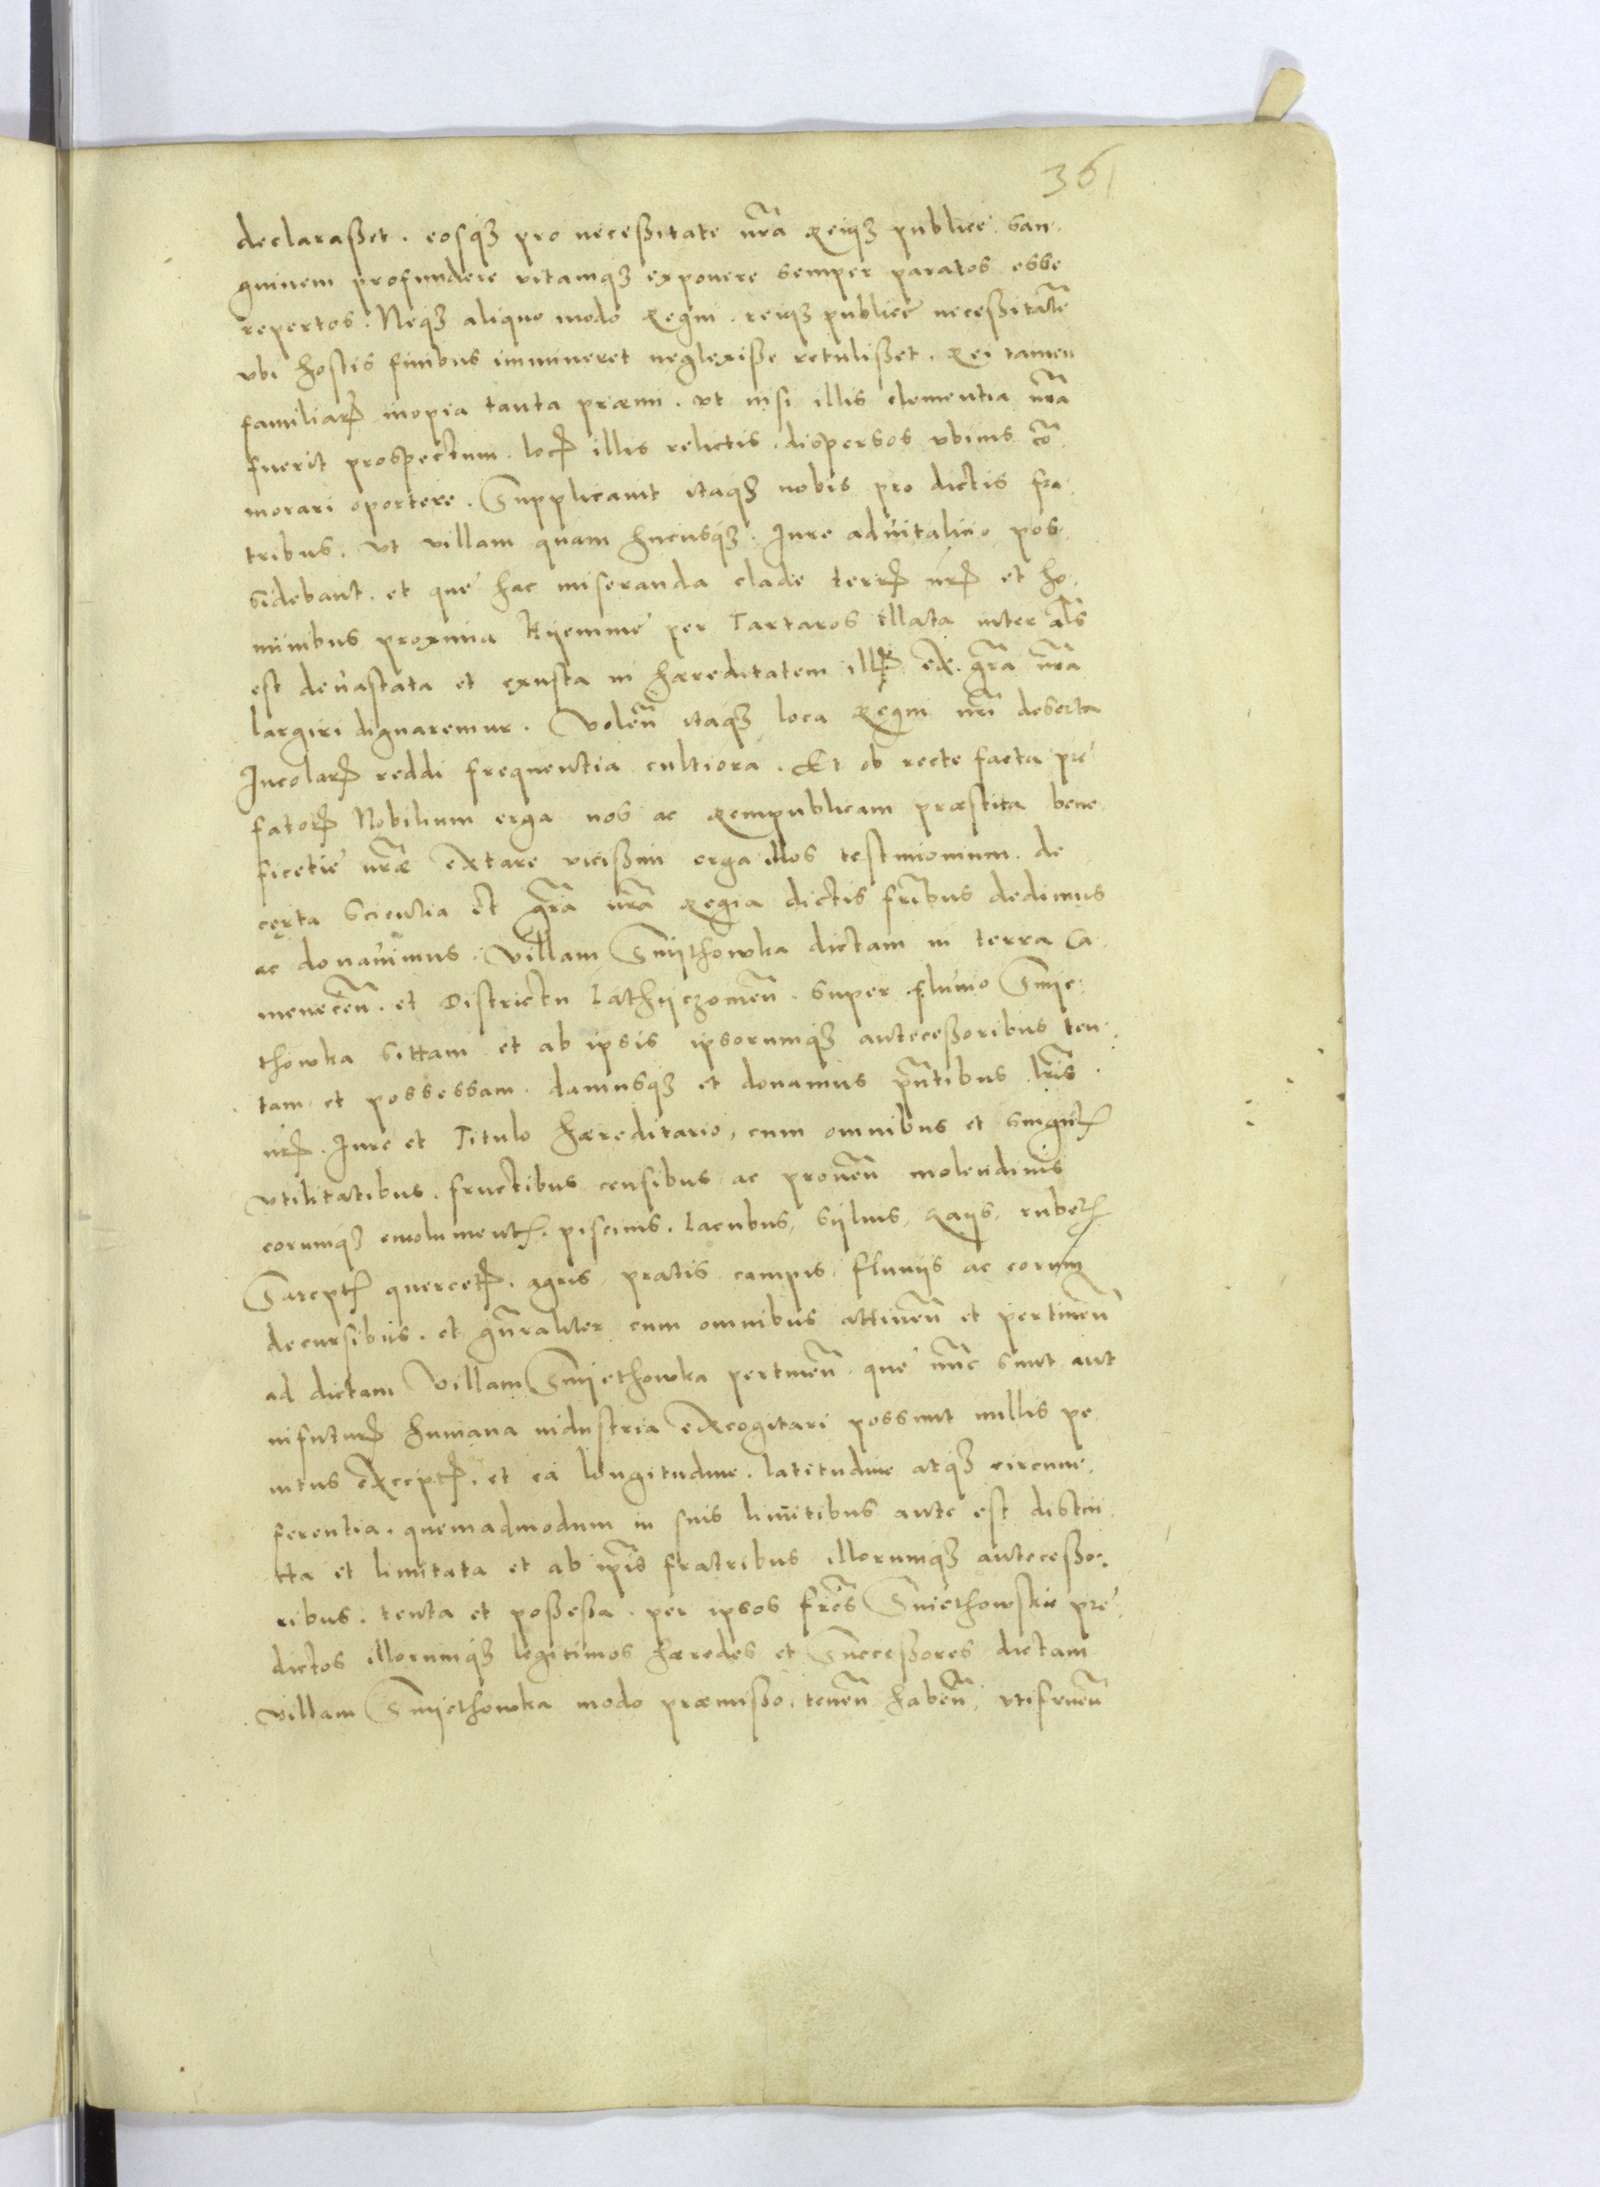 361
declaraßet. eosq3 pro necessitate nr̃a Reiq3 publice san
guinem profundere vitamq3 exponere semper paratos esse
repertos. Neq3 aliquo modo Regni. reiq3 publice necessitatẽ
vbi hostis finibus immineret neglexiße retulißet. Rei tamen
familiarꝭ inopia tanta præmi. vt nisi illis clementia nr̃a
fuerit prospectum. locꝭ illis relictis. dispersos vbiuis cõ
morari oportere. Supplicauit itaq3 nobis pro dictis fra
tribus. vt villam quam hucusq3 Iure aduitalicio pos
sidebant. et que hac miseranda clade terrꝭ nrꝭ et ho
minibus proxima hyemme per Tartaros illata inter al̃s
est deuastata et exusta in hæreditatem illꝭ ex gr̃a nr̃a
largiri dignaremur. Voleñ itaq3 loca Regni nr̃i deserta
Incolarꝭ reddi frequentia cultiora. Et ob recte facta pre
fatorꝭ Nobilium erga nos ac Rempublicam præstita bene
ficetie nr̃æ extare vicißim erga illos testimonium. de
certa scientia et gr̃a nr̃a Regia dictis fr̃ibus dedimus
ac donauimus. Villam Smythowka dictam in terra Ca
meneceñ. et Districtu Lathyczouieñ. super fluuio Smye
thowka sittam et ab ipsis ipsorumq3 antecessoribus ten
tam et possessam. damusq3 et donamus pñtibus lr̃is
nrꝭ. Iure et Titulo hæreditario, cum omnibus et singulꝭ
vtilitatibus. fructibus censibus ac proueñ molendinis
eorumq3 emolumentꝭ. piscinis. Lacubus, syluis, Gays, rubetꝭ
Sareptꝭ quercetꝭ. agris, pratis campis, fluuijs ac eorum
decursibus. et gñraliter cum omnibus attineñ et pertineñ
ad dictam Villam Smyethowka pertineñ que nũc sunt aut
infuturꝭ humana industria excogitari possunt nullis pe
nitus exceptꝭ. et ea longitudine. latitudine atq3 circumfe
ferentia. quemadmodum in suis limitibus ante est distin
cta et limitata et ab ip̃is fratribus illorumq3 anteceßo
ribus. tenta et poßeßa. per ipsos fr̃es Smiethowskie pre
dictos illorumq3 legitimos hæredes et Succeßores dictam
villam Smyethowka modo præmißo. teneñ habeñ, vtifrueñ